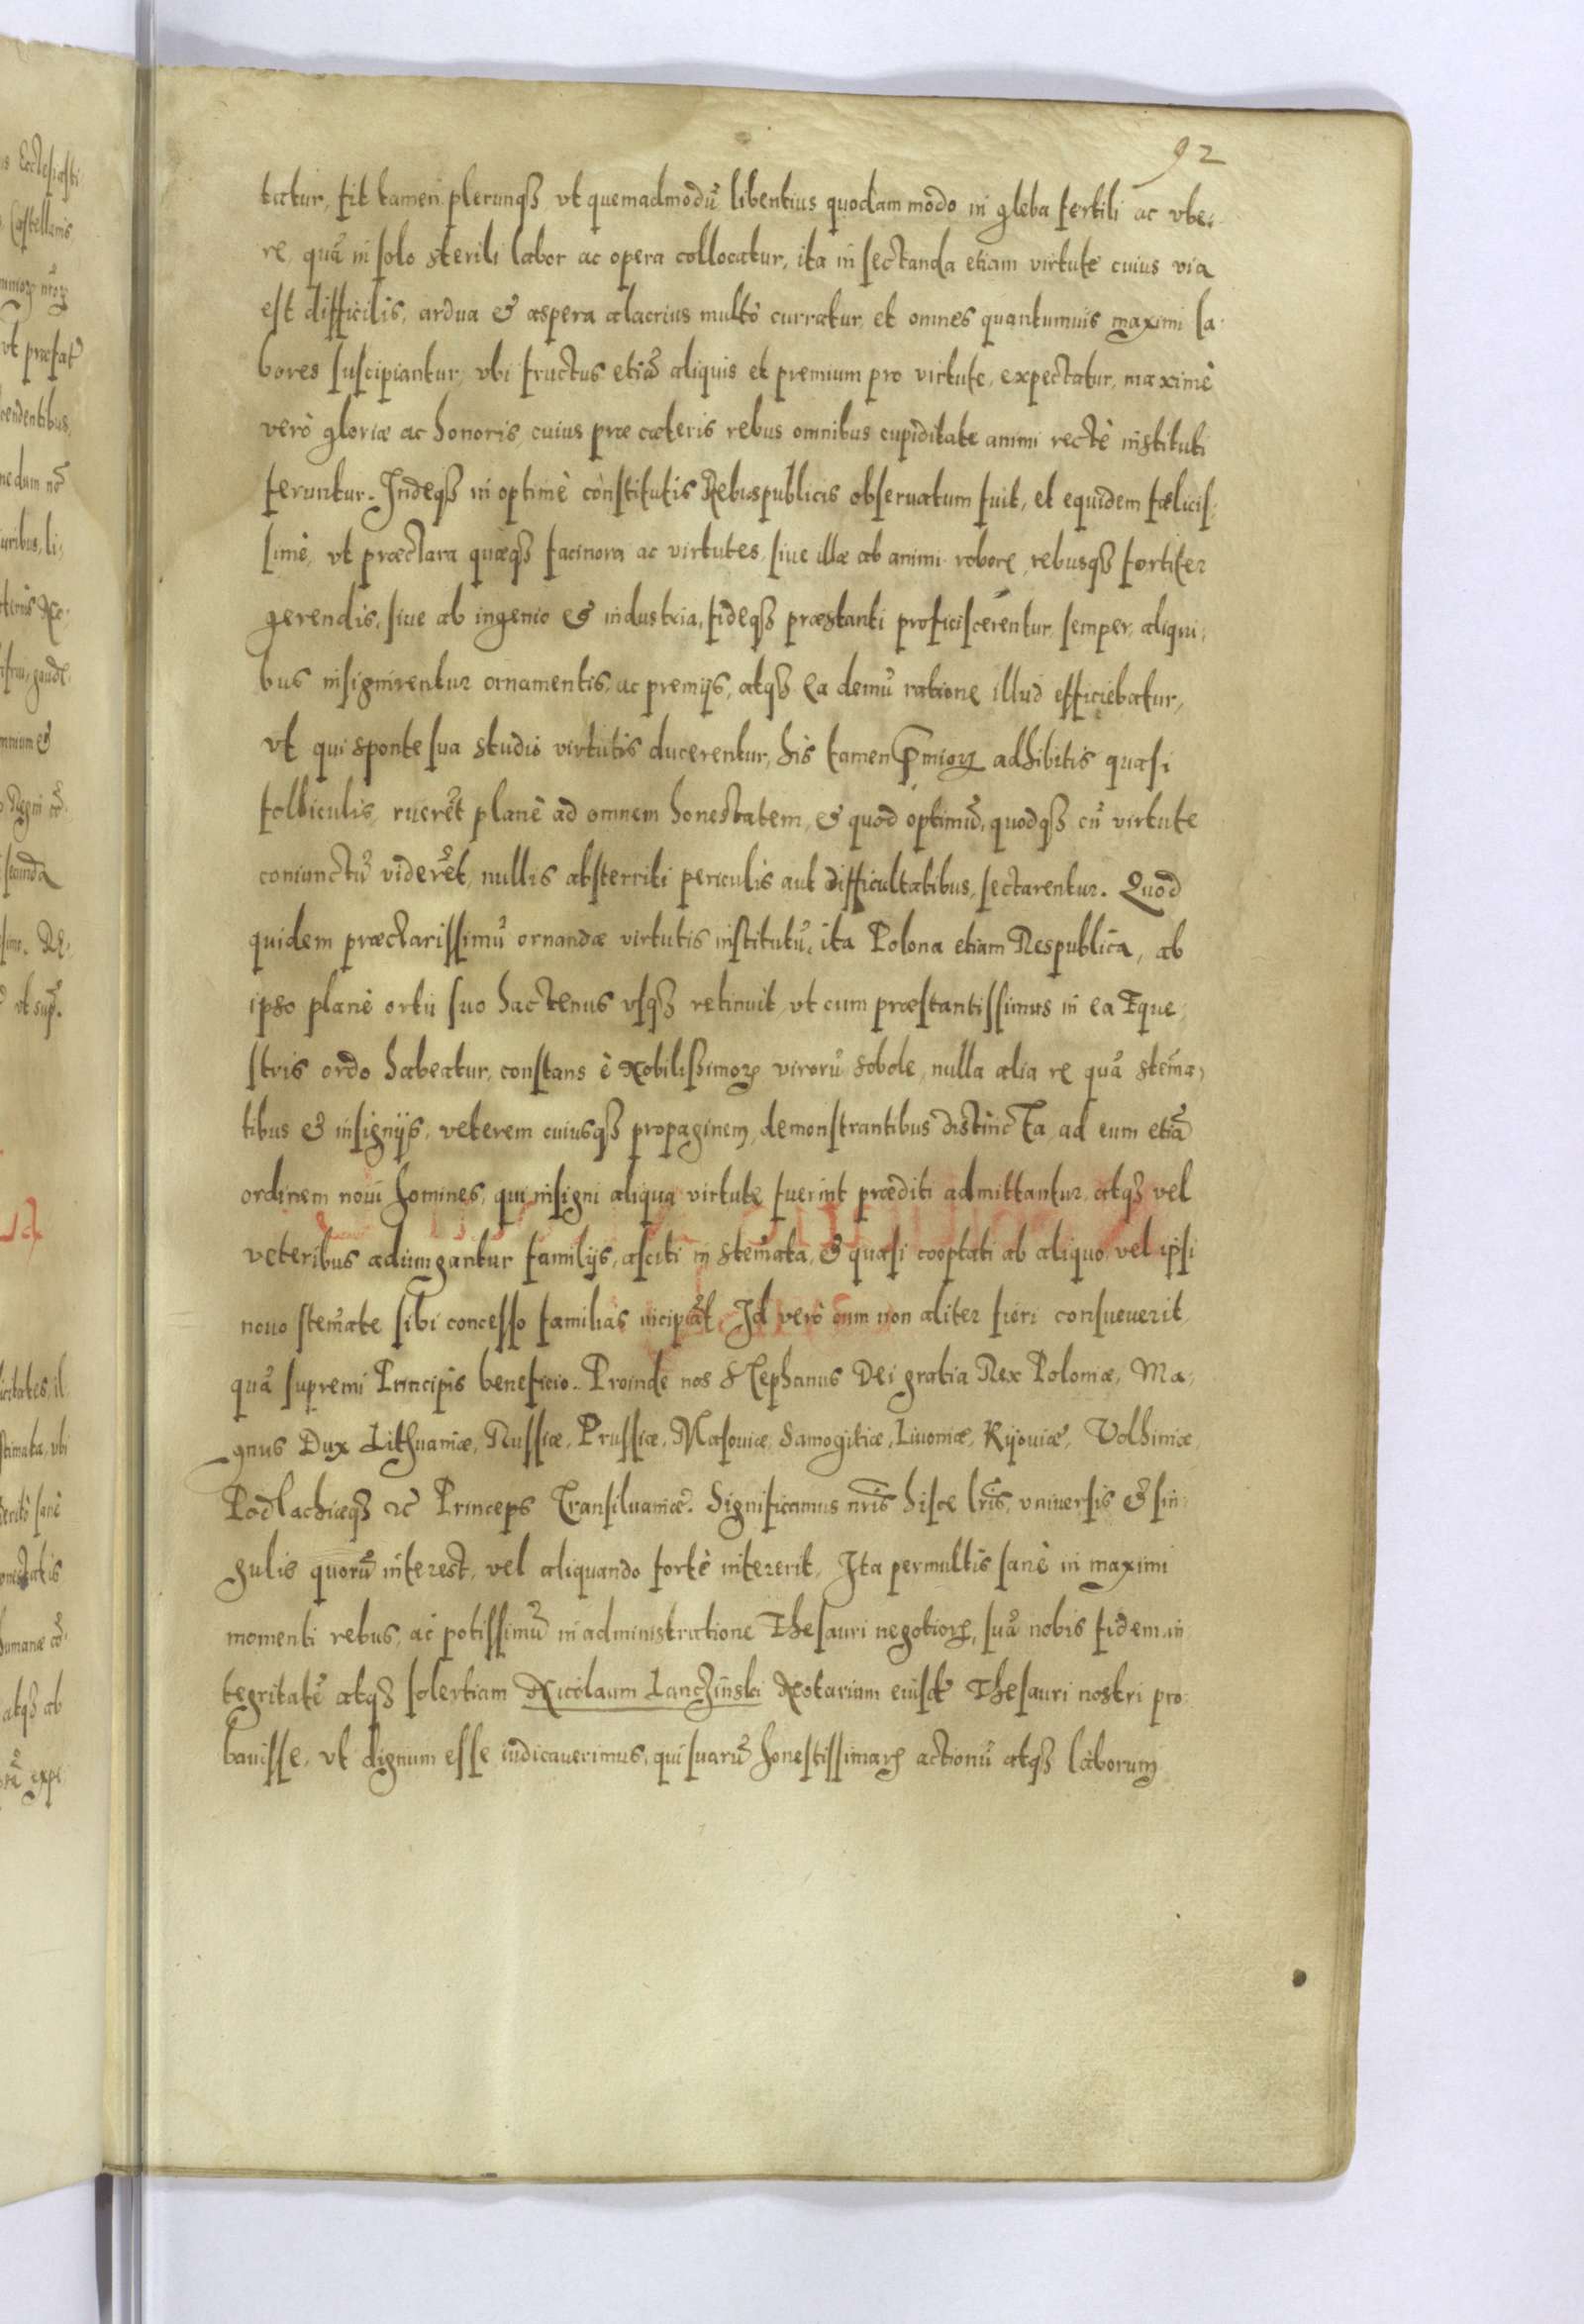 92
tatur, fit tamen plerunqꝫ vt quemadmodũ libentius quodam modo in gleba fertili ac vbe,
re, quã in solo sterili labor ac opera collocatur, ita in sectanda etiam virtute cuius via
est difficilis, ardua & aspera alacrius multò curratur, et omnes quantumuis maximi la,
bores suscipiantur, vbi fructus etiã aliquis et premium pro virtute, expectatur, maximè
verò gloriæ ac honoris, cuius præ cæteris rebus omnibus cupiditate animi rectè instituti
feruntur. Indeqꝫ in optimè constitutis Rebuspublicis obseruatum fuit, et equidem fœlicis,
simè, vt præclara quæqꝫ facinora ac virtutes, siue illæ ab animi robore, rebusqꝫ fortiter
gerendis, siue ab ingenio & industria, fideqꝫ præstanti proficiscerentur, semper, aliqui,
bus insignirentur ornamentis, ac premijs, atqꝫ ea demũ ratione illud efficiebatur,
vt qui sponte sua studio virtutis ducerentur, his tamen p̄mioꝝ adhibitis quasi
folliculis, ruerẽt planè ad omnem honestatem, & quod optimũ, quodqꝫ cũ virtute
coniunctũ viderẽt, nullis absterriti periculis aut difficultatibus, sectarentur. Quod
quidem præclarissimũ ornandæ virtutis institutũ, ita Polona etiam Respublica, ab
ipso planè ortu suo hactenus vsqꝫ retinuit, vt cum præstantissimus in ea Eque,
stris ordo habeatur, constans è Nobilissimoꝝ virorũ sobole, nulla alia re quã stem̃a,
tibus & insignijs, veterem cuiusqꝫ propaginem, demonstrantibus distincta, ad eum etiã
ordinem noui homines, qui insigni aliqua virtute fuerint præditi admittantur, atqꝫ vel
veteribus adiungantur familijs, asciti in stem̃ata, & quasi cooptati ab aliquo, vel ipsi
nouo stem̃ate sibi concesso familias incipiãt. Id verò cum non aliter fieri consueuerit,
quã supremi Principis beneficio. Proinde nos Stephanus Dei gratia Rex Poloniæ, Ma,
gnus Dux Lithuaniæ, Russiæ, Prussiæ, Masouiæ, Samogitiæ, Liuoniæ, Kijouiæ, Volhiniæ,
Podlachiæqꝫ ꝛc̃ Princeps Transiluaniæ. Significamus nr̃is hisce lr̃is, vniuersis & sin,
gulis quorũ interest, vel aliquando fortè intererit, Ita permultis sanè in maximi
momenti rebus, ac potissimũ in administratione Thesauri negotioꝝ, suã nobis fidem in,
tegritatẽ atqꝫ solertiam Nicolaum Lanczinski Notarium eiusd̃ Thesauri nostri pro,
bauisse, vt dignum esse iudicauerimus, qui suarũ honestissimaꝝ actionũ atqꝫ laborum